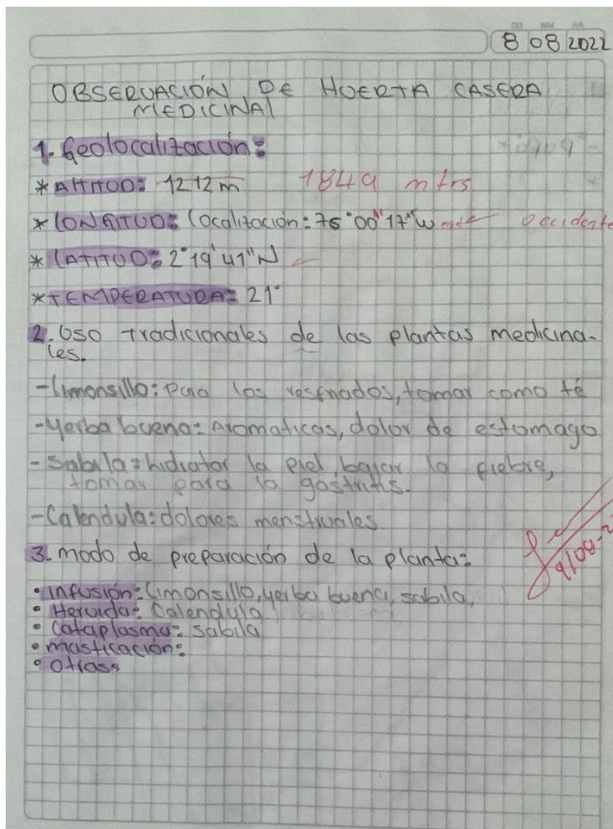 DD MM AA
8 08 2022
OBSERVACIÓN DE HUERTA CASERA
MEDICINAL
1. Geolocalización:
*ALTITUD: 1212m 1849 mtrs
*LONGITUD: Localización: 76°00"17"W occidente
*LATITUD: 2°19'41"N
*TEMPERATURA: 21°
2. Uso tradicionales de las plantas medicina-
les.
-Limonsillo: Para los resfriados, tomar como té
-Yerba buena: Aromaticas, dolor de estomago
-Sabila: hidratar la piel, bajar la fiebre,
tomar para la gastritis.
-Calendula: dolores menstruales
3. modo de preparación de la planta:
• Infusión: Limonsillo, yerba buena, sabila,
• Hervida: Calendula
• Cataplasma: sabila
• masticación:
• otras: